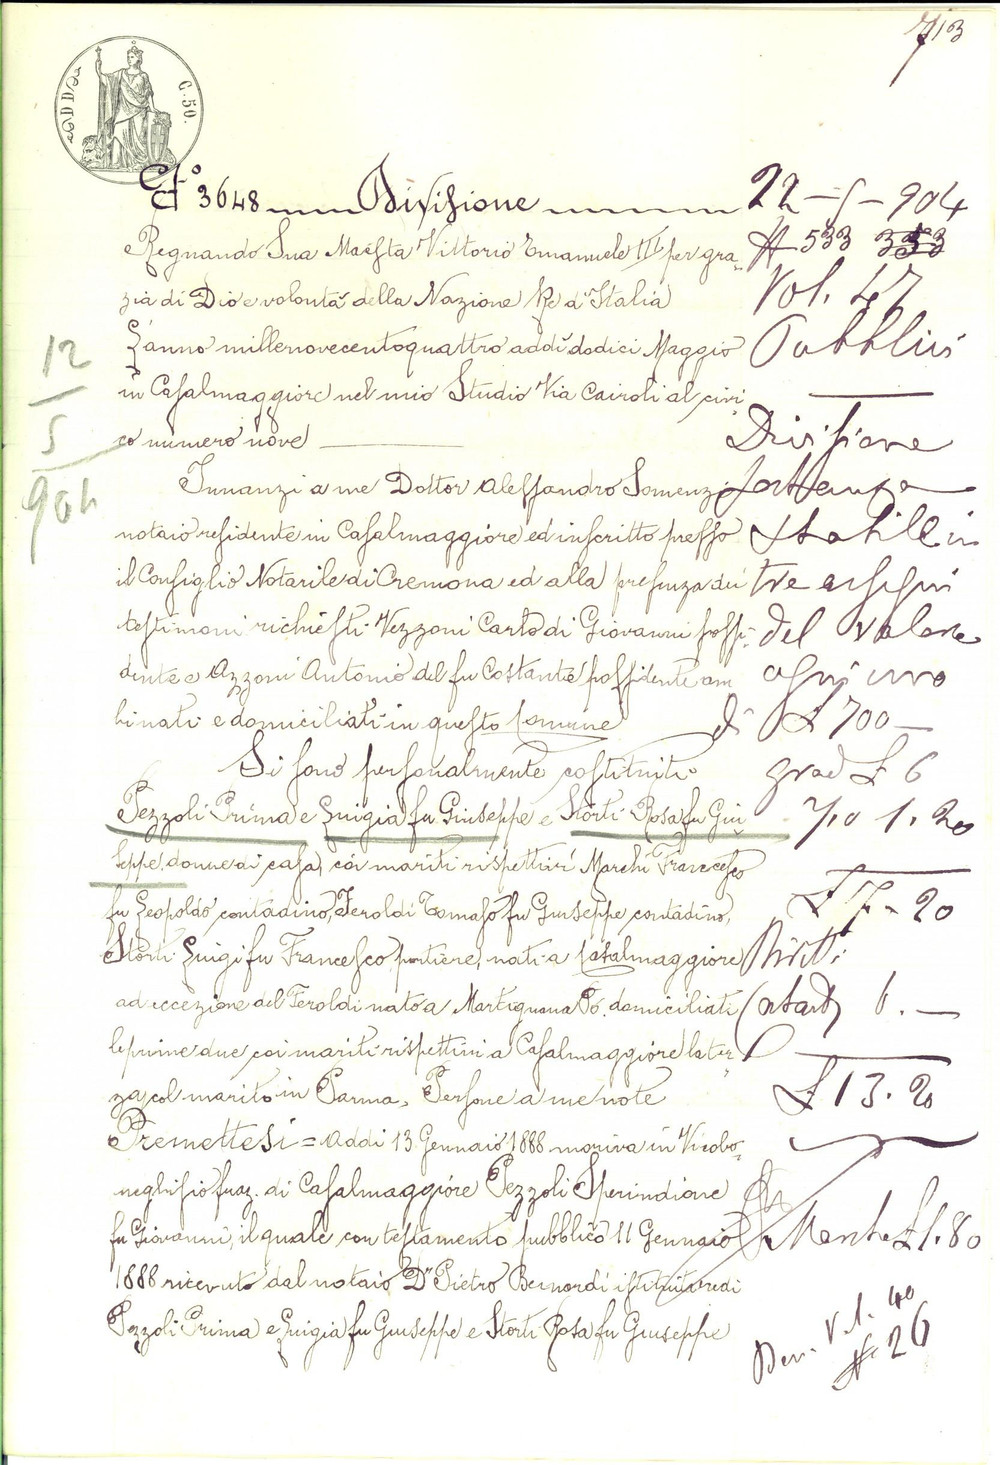 713
C. 50.
N° 3648 Divisione
Regnando Sua Maestà Vittorio Emanuele III per gra-
zia di Dio e volontà della Nazione Re d'Italia
L'anno millenovecentoquattro addì dodici Maggio
in Casalmaggiore nel mio Studio Via Cairoli al civi-
co numero nove
Innanzi a me Dottor Alessandro Somenzi
notaio residente in Casalmaggiore ed inscritto presso
il Consiglio Notarile di Cremona ed alla presenza dei
testimoni richiesti Vezzoni Carlo di Giovanni possi-
dente e Azzoni Antonio del fu Costante possidente am
bi nati e domiciliati in questo Comune
Si sono personalmente costituiti
Pezzoli Prima e Luigia fu Giuseppe e Storti Rosa fu Giu
seppe donne di casa, coi mariti rispettivi Marchi Francesco
fu Leopoldo contadino, Feroldi Tomaso fu Giuseppe contadino,
Storti Luigi fu Francesco portiere, nati a Casalmaggiore
ad eccezione del Feroldi nato a Martignana Po, domiciliati
le prime due coi mariti rispettivi a Casalmaggiore la ter
za col marito in Parma. Persone a me note
Premettesi = Addì 13 Gennaio 1888 moriva in Vicobo-
neghisio fraz. di Casalmaggiore Pezzoli Sperindione
fu Giovanni, il quale con testamento pubblico 11 Gennaio
1888 ricevuto dal notaio Dr Pietro Bernardi istituì eredi
Pezzoli Prima e Luigia fu Giuseppe e Storti Rosa fu Giuseppe
12
5
904
22 - 5 - 904
N 533 353
Vol. 47
Pubblici
Divisione
sostanza
stabile in
tre assegni
del valore
ogni uno
di £ 700
grad £ 6
1.20
£ 7.20
Diritti
6.
£ 13.20
Marche £ 1.80
Den. Vol. 40
N. 26